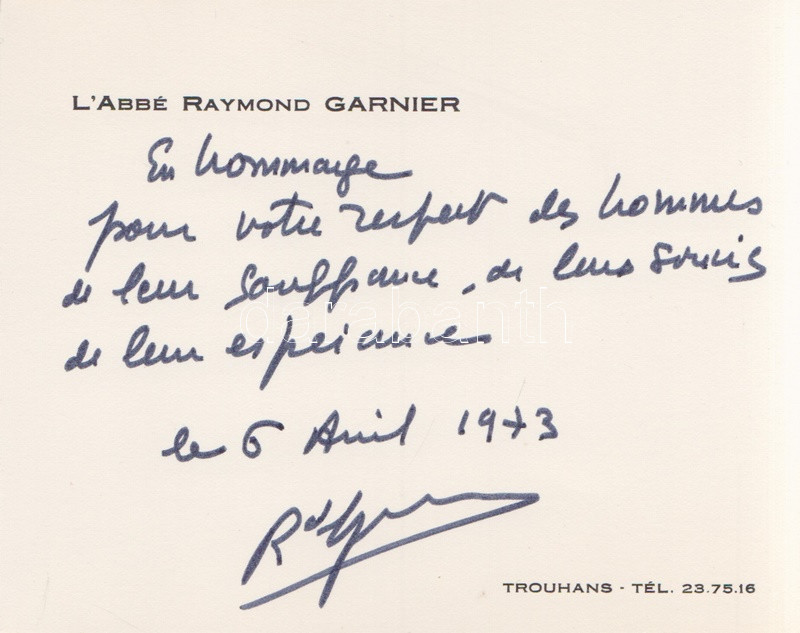 L'ABBÉ RAYMOND GARNIER
En hommage
pour votre respect des hommes
de leur souffrance, de leurs soucis
de leur espérance
le 6 Avril 1973
darabanth
TROUHANS - TÉL. 23.75.16